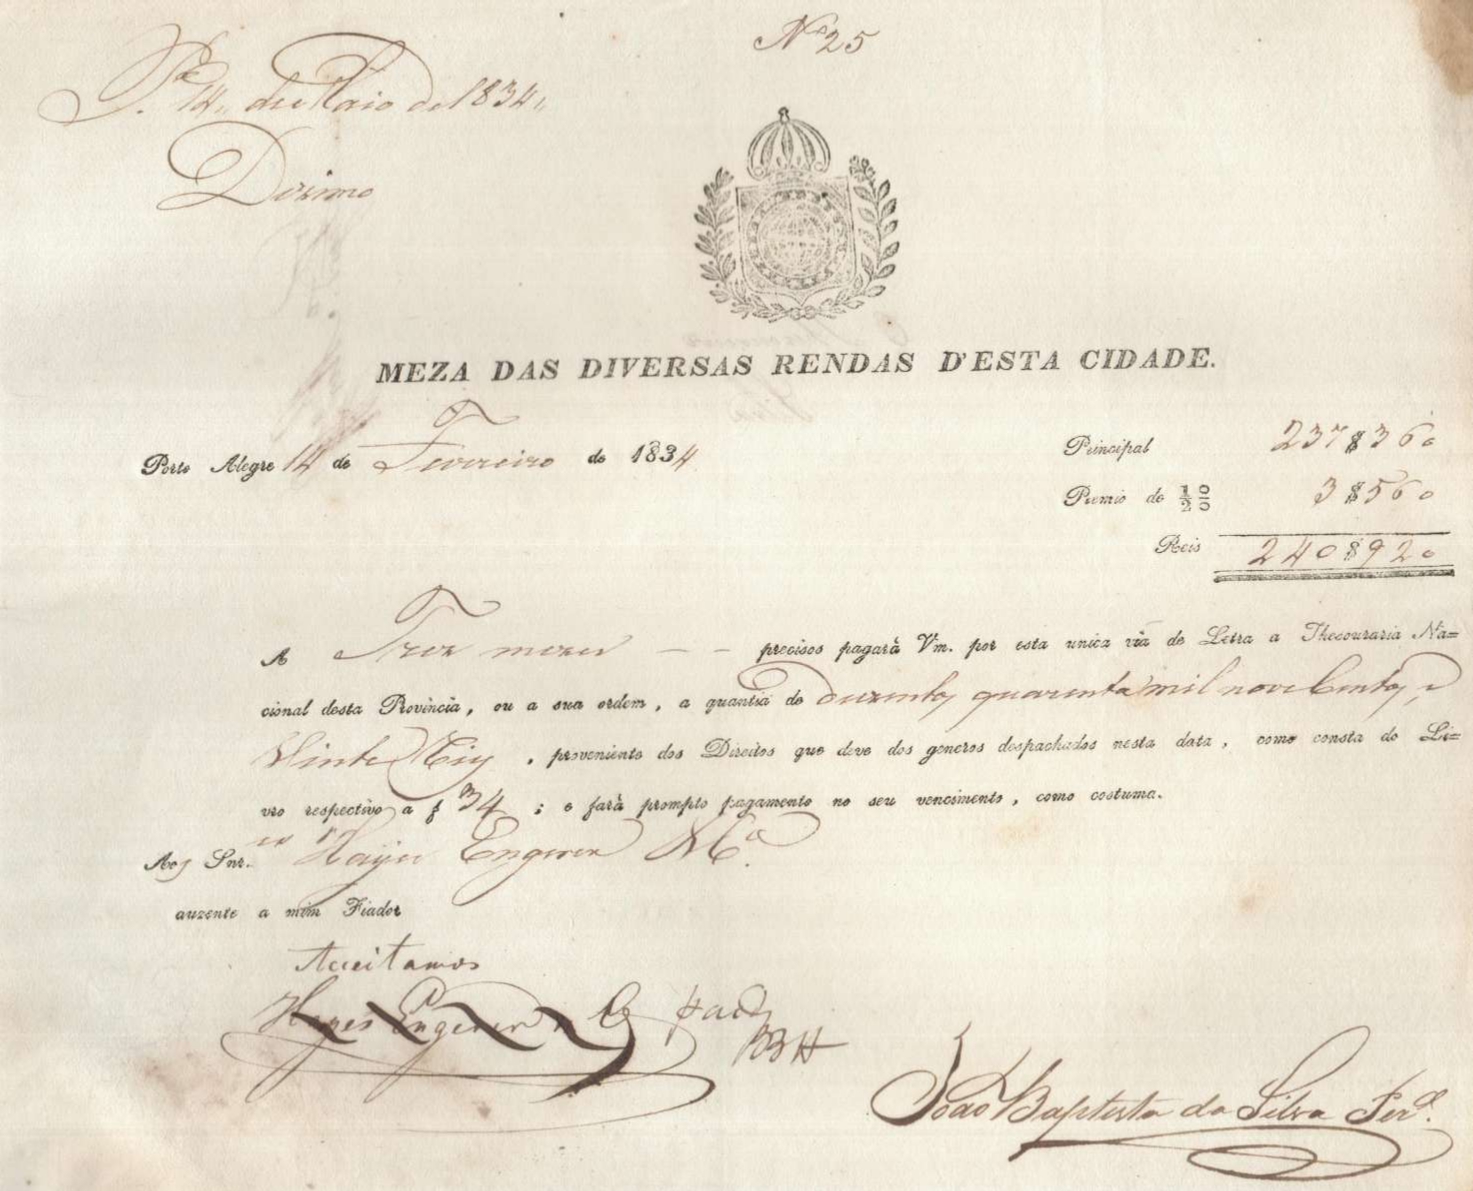 Nº 25
Pª 14, de Maio de 1834,,
Dizimo
MEZA DAS DIVERSAS RENDAS D'ESTA CIDADE.
Porto Alegre 14 de Fevereiro de 1834
Principal 237$360
Premio de ½ % 3$560
Reis 240$920
A Trez mezes — — precisos pagará Vm. por esta unica via de Letra a Thesouraria Na=
cional desta Provincia, ou a sua ordem, a quantia de Duzentos quarenta mil nove Centos, e
Vinte Reis, proveniente dos Direitos que deve dos generos despachados nesta data, como consta do Li=
vro respectivo a f 34; e fará prompto pagamento no seu vencimento, como costuma.
Aos Snr.es Hayes Engerer & Cª.
auzente a mim Fiador
Aceitamos
Hayes Engerer & Cº
João Baptista da Silva Perª.